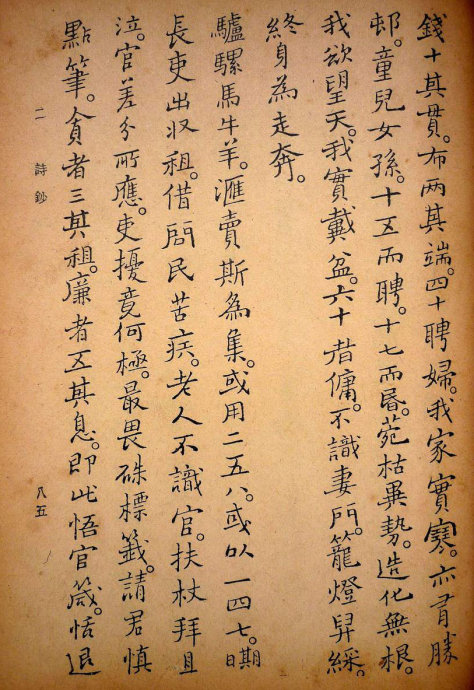 錢十其貫。布两其端。四十聘婦。我家實寠。亦有勝
邨。童兒女孫。十五而聘。十七而昏。菀枯異勢。造化無根。
我欲望天。我實戴盆。六十者傭。不識妻門。籠燈舁綵。
終身為走奔。
驢騾馬牛羊。滙賣斯為集。或用二五八。或以一四七。期日
長吏出收租。借問民苦疾。老人不識官。扶杖拜且
泣。官差分所應。吏擾竟何極。最畏硃標籤。請君慎
點筆。貪者三其租。廉者五其息。即此悟官箴。恬退
二 詩鈔 八五